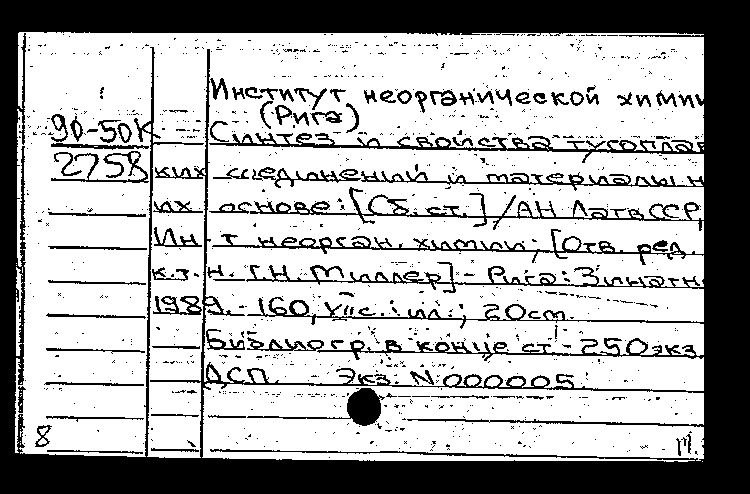 Институт неорганической химии
(Рига)
90-50К Синтез и свойства тугоплав
2758 ких соединений и материалы н
их основе: [Сб. ст.] / АН ЛатвССР,
Ин-т неорган. химии; [Отв. ред.
к.т.н. Т.Н. Миллер] - Рига: Зинатне
1989. - 160, VII с.: ил.; 20 cm.
Библиогр. в конце ст. - 250 экз.
ДСП. - Экз. N 000005.
8 М.